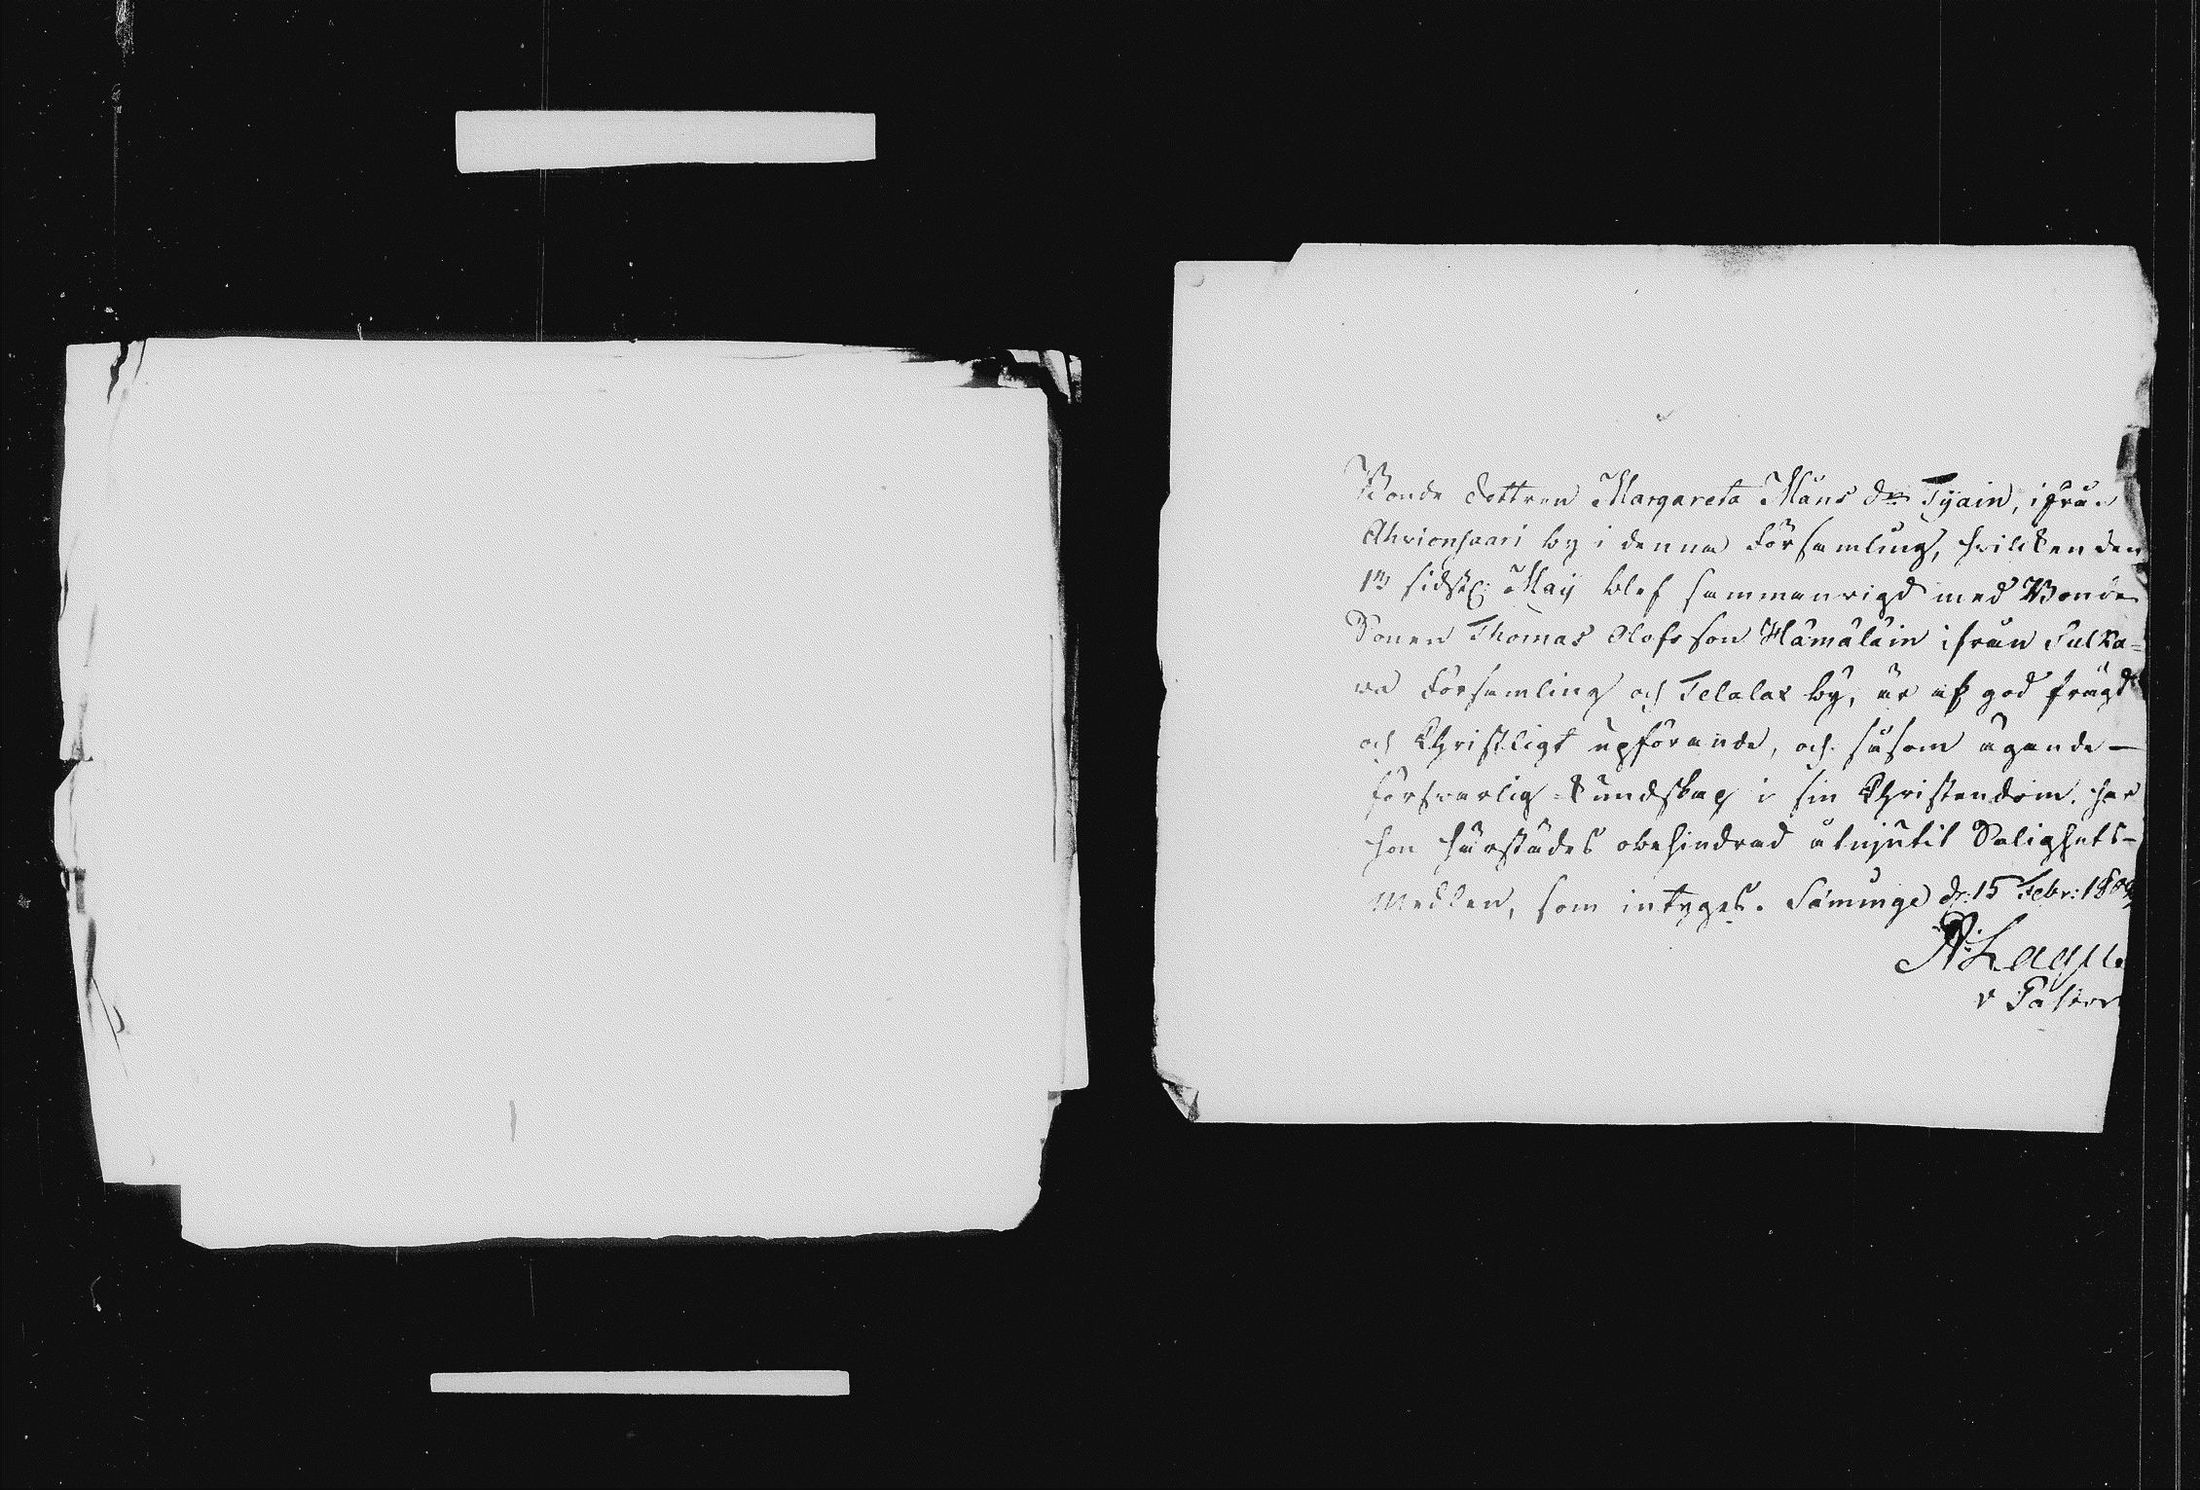 Bonde Dottren Margareta Måns dr Tyäin, ifrån
Ahvionsaari by i denna Församling, hvilken den
1ste sidstl: Maij blef sammanvigd med Bonde
Sonen Thomas Olofsson Hämäläin ifrån Sulka-
va Församling och Telalax by, är af god frägd
och Christligt upförande, och såsom ägande —
försvarlig Kundskap i sin Christendom, har
hon härstädes obehindrad åtnjutit Salighets-
Medlen, som intygas. Säminge d: 15 Febr: 180
v Pastor